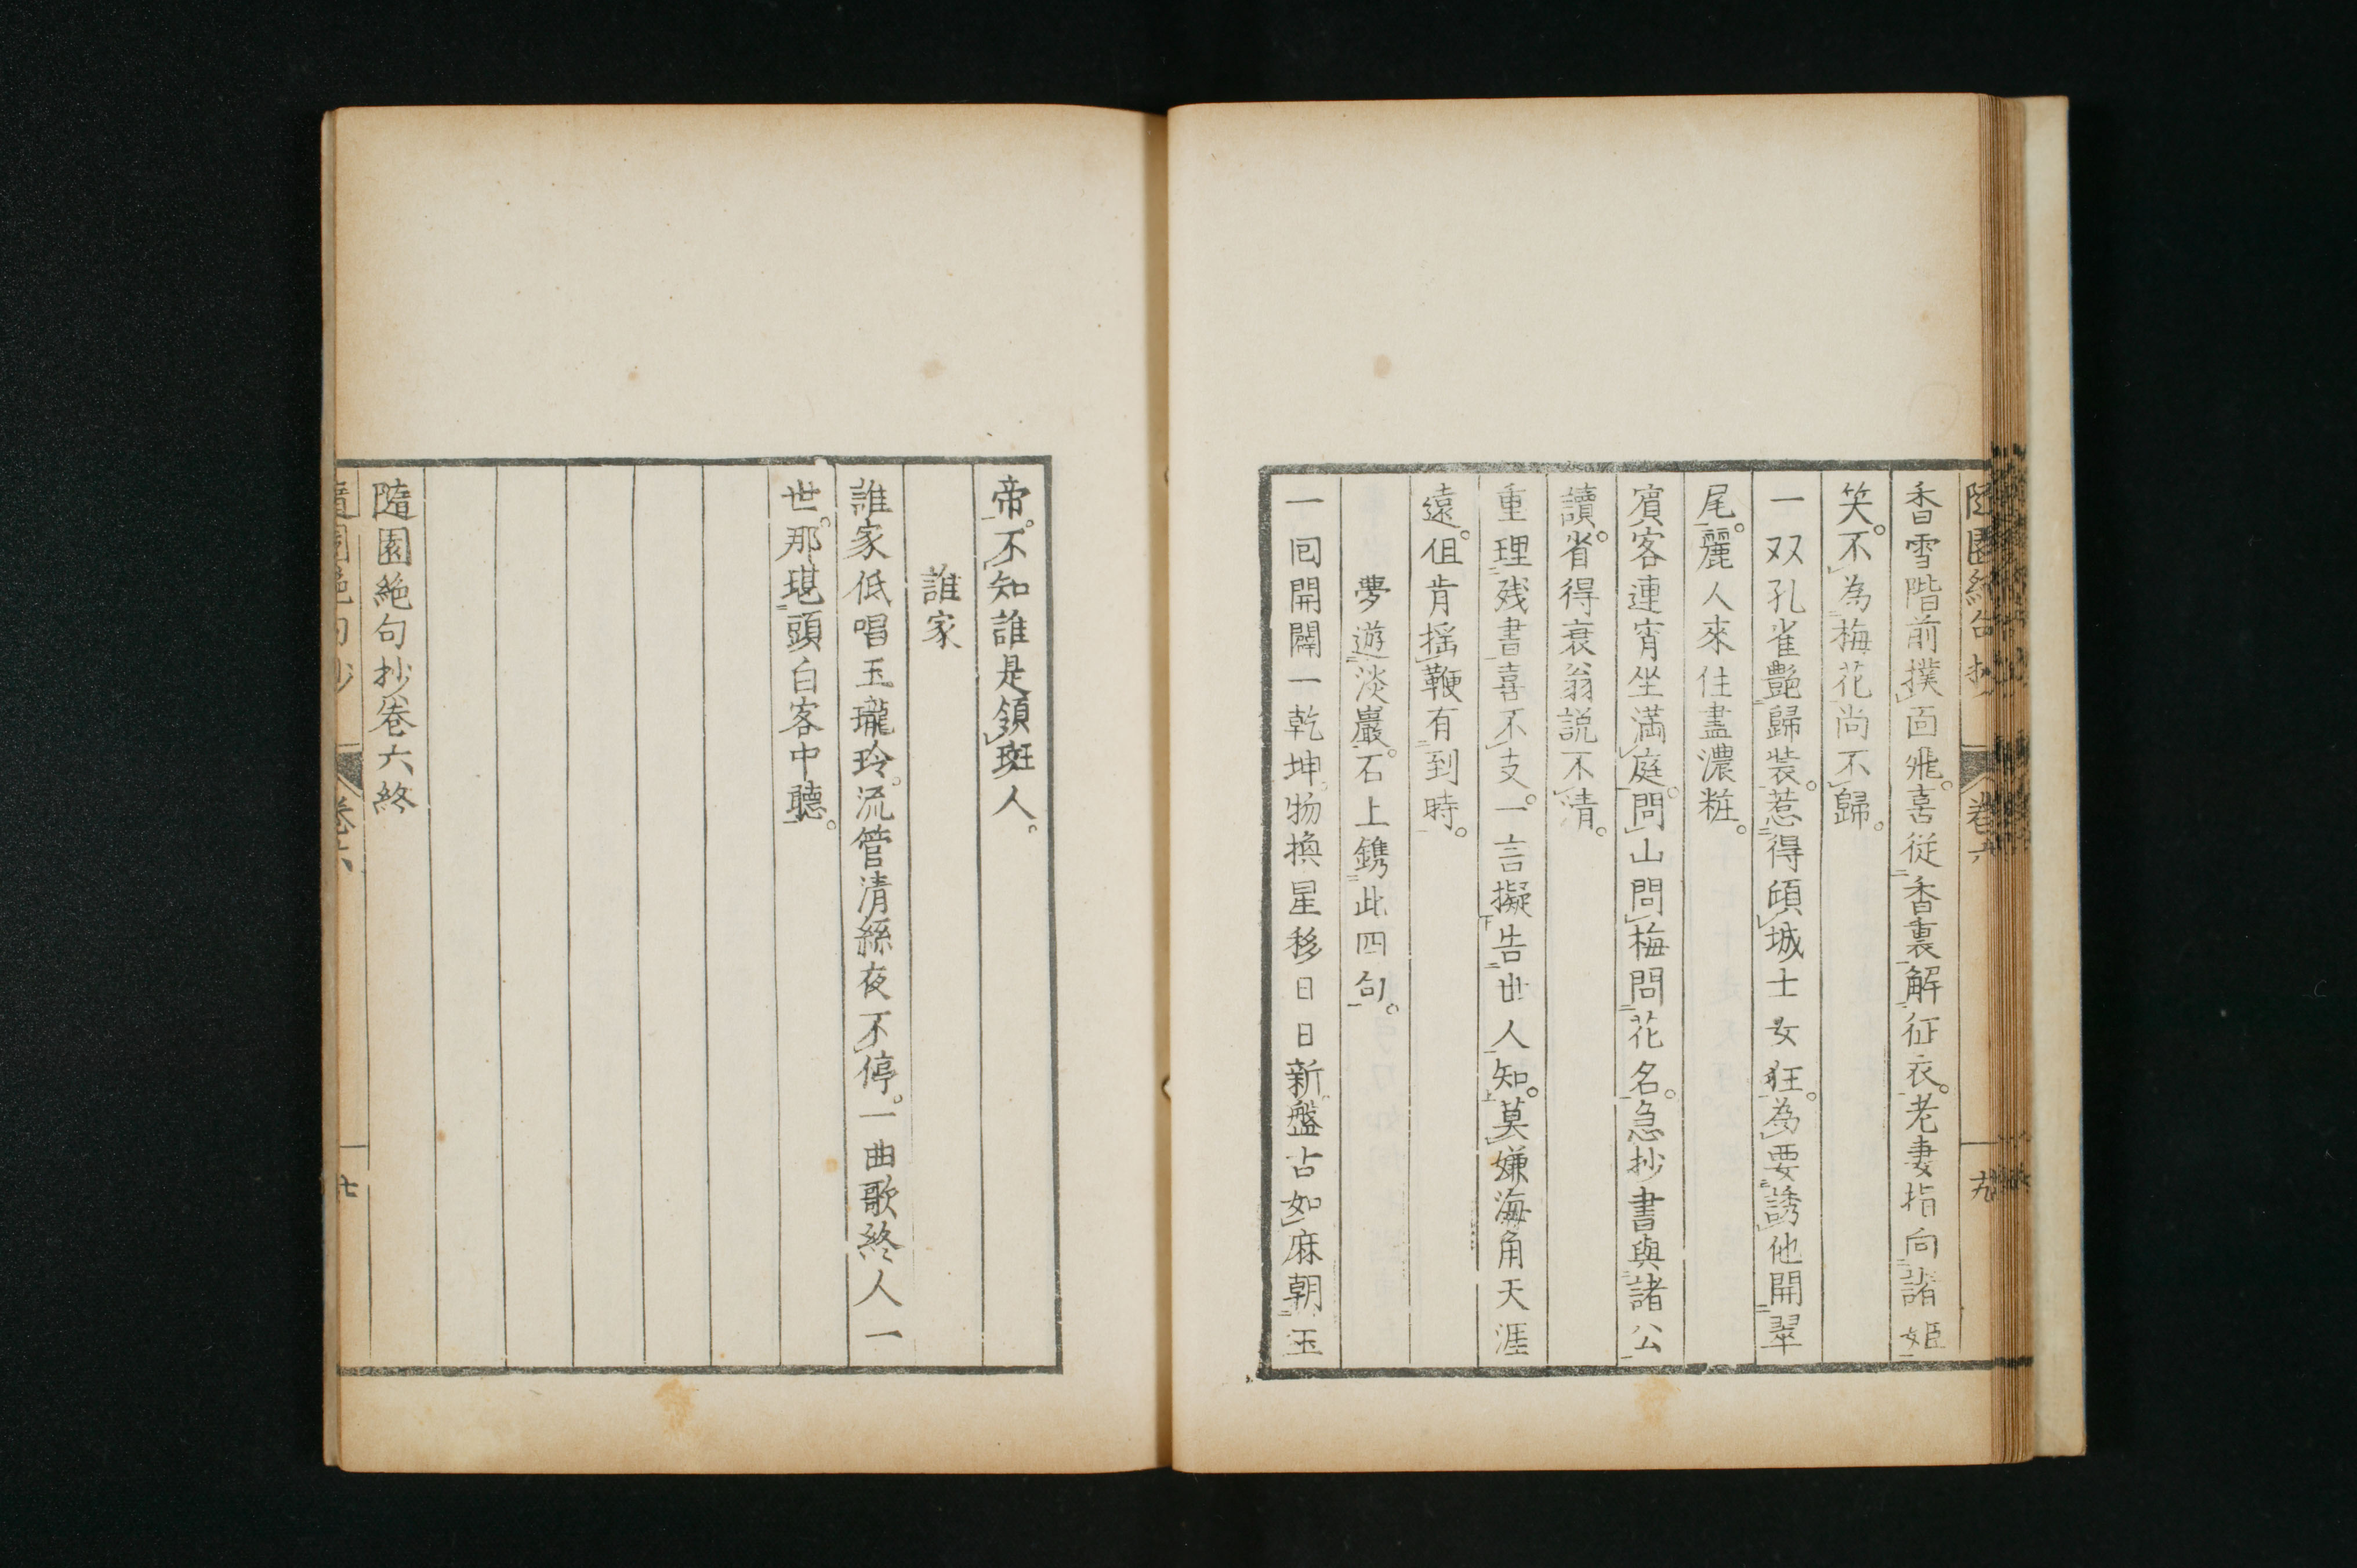 香雪階前撲面飛。喜從香裏解征衣。老妻指向諸姬
笑。不為梅花尚不歸。
一双孔雀艷歸裝。惹得傾城士女狂。為要誘他開翠
尾。麗人來住盡濃粧。
賓客連宵坐滿庭。問山問梅問花名。急抄書與諸公
讀。省得衰翁説不清。
重理残書喜不支。一言擬告世人知。莫嫌海角天涯
遠。但肯揺鞭有到時。
夢遊淡巖。石上鐫此四句。
一囘開闢一乾坤。物換星移日日新。盤古如麻朝玉
帝。不知誰是領班人。
誰家
誰家低唱玉瓏玲。流管清絲夜不停。一曲歌終人一
世。那堪頭白客中聽。
隨園絶句抄卷六終
隨園絶句抄
卷六
七